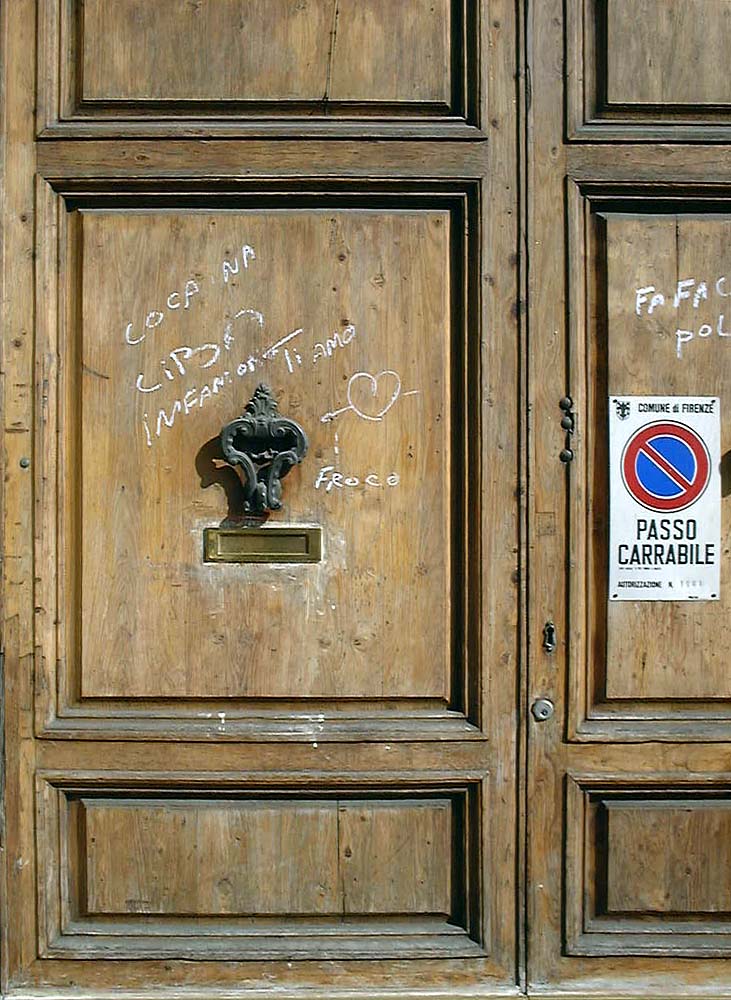 COCAINA
INFAMONE TI AMO
FROCO
FAFAC
POL
COMUNE di FIRENZE
PASSO
CARRABILE
AUTORIZZAZIONE N.